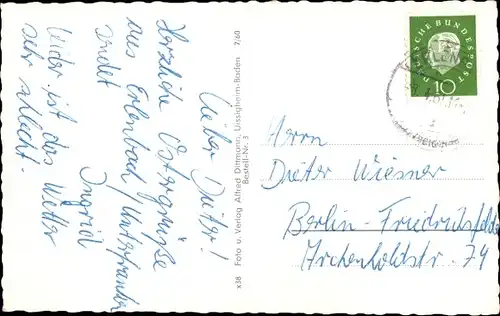 Lieber Dieter!
Herzliche Ostergrüße
aus Erlenbach/Unterfranken
sendet Ingrid
Leider ist das Wetter
sehr schlecht.
x38 Foto u. Verlag Alfred Dittmann, Uissigheim-Baden 7/60
Bestell-Nr. 3
DEUTSCHE BUNDESPOST
10
Herrn
Dieter Wiesner
Berlin-Friedrichsfelde
Archenholdstr. 74